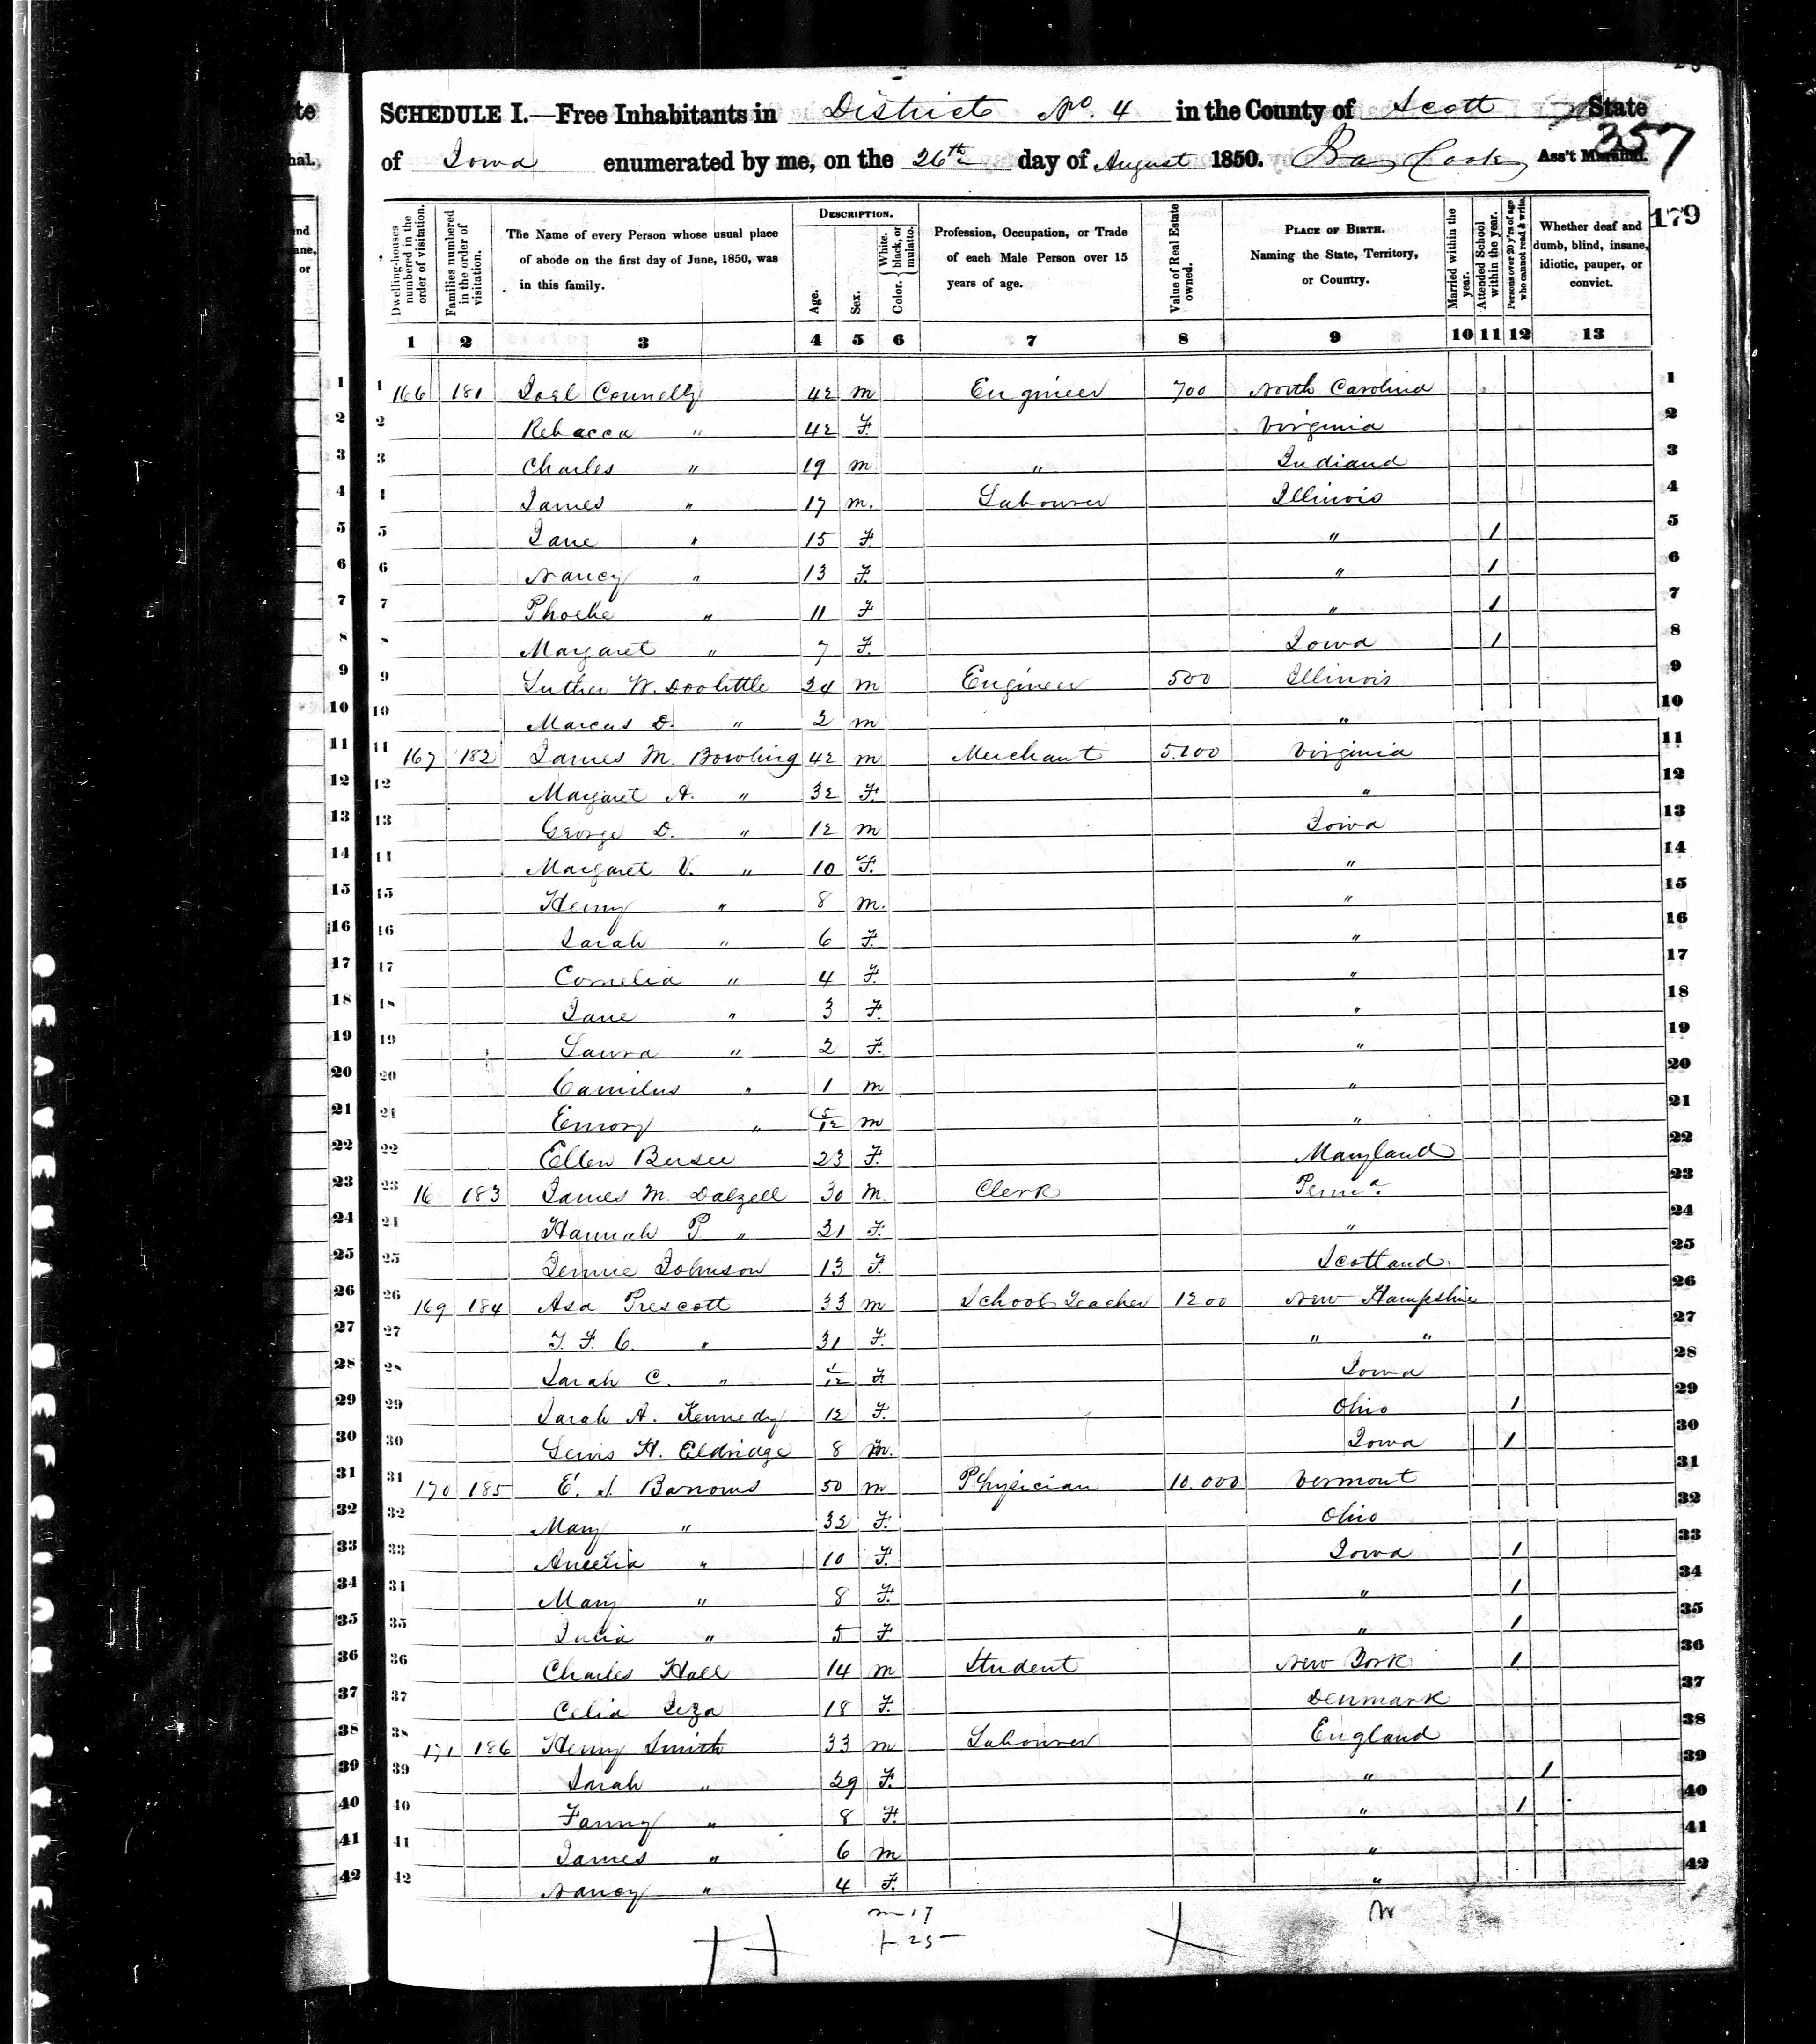 SCHEDULE I.—Free Inhabitants in District No. 4 in the County of Scott State
357
of Iowa enumerated by me, on the 26th day of August 1850. Ira Cook Ass't Marshal.
179
Dwelling-houses numbered in the order of visitation.
Families numbered in the order of visitation.
The Name of every Person whose usual place of abode on the first day of June, 1850, was in this family.
DESCRIPTION.
Age.
Sex.
Color. { White, black, or mulatto.
Profession, Occupation, or Trade of each Male Person over 15 years of age.
Value of Real Estate owned.
PLACE OF BIRTH. Naming the State, Territory, or Country.
Married within the year.
Attended School within the year.
Persons over 20 y'rs of age who cannot read & write.
Whether deaf and dumb, blind, insane, idiotic, pauper, or convict.
1 2 3 4 5 6 7 8 9 10 11 12 13
1 166 181 Joel Connelly 42 m Engineer 700 North Carolina 1
2 Rebacca " 42 F. Virginia 2
3 Charles " 19 m " Indiana 3
4 James " 17 m. Labourer Illinois 4
5 Jane " 15 F. " 1 5
6 Nancy " 13 F. " 1 6
7 Phoebe " 11 F " 1 7
8 Margaret " 7 F. Iowa 1 8
9 Luther W. Doolittle 24 m Engineer 500 Illinois 9
10 Marcus D. " 2 m " 10
11 167 182 James M. Bowling 42 m Merchant 5.100 Virginia 11
12 Margaret A. " 32 F. " 12
13 George D. " 12 m Iowa 13
14 Margaret V. " 10 F. " 14
15 Henry " 8 m. " 15
16 Sarah " 6 F. " 16
17 Cornelia " 4 F. " 17
18 Jane " 3 F. " 18
19 Laura " 2 F. " 19
20 Camilus " 1 m " 20
21 Emory " 5/12 m " 21
22 Ellen Bersee 23 F. Maryland 22
23 16 183 James M. Dalzell 30 M. Clerk Penna. 23
24 Hannah P. " 21 F. " 24
25 Jennie Johnson 13 F. Scotland. 25
26 169 184 Asa Prescott 33 m School Teacher 1200 New Hampshire 26
27 F. C. " 31 F. " " 27
28 Sarah C. " /12 F. Iowa 28
29 Sarah A. Kennedy 12 F. Ohio 1 29
30 Lewis H. Eldridge 8 m. Iowa 1 30
31 170 185 E. S. Barrows 50 m Physician 10.000 Vermont 31
32 Mary " 32 F. Ohio 32
33 Amelia " 10 F. Iowa 1 33
34 Mary " 8 F. " 1 34
35 Julia " 5 F. " 1 35
36 Charles Hall 14 m Student New York 1 36
37 Celia 18 F. Denmark 37
38 171 186 Henry Smith 33 m Labourer England 38
39 Sarah " 29 F. " 1 39
40 Fanny " 8 F. " 1 40
41 James " 6 m " 41
42 Nancy " 4 F. " 42
m 17
f 25